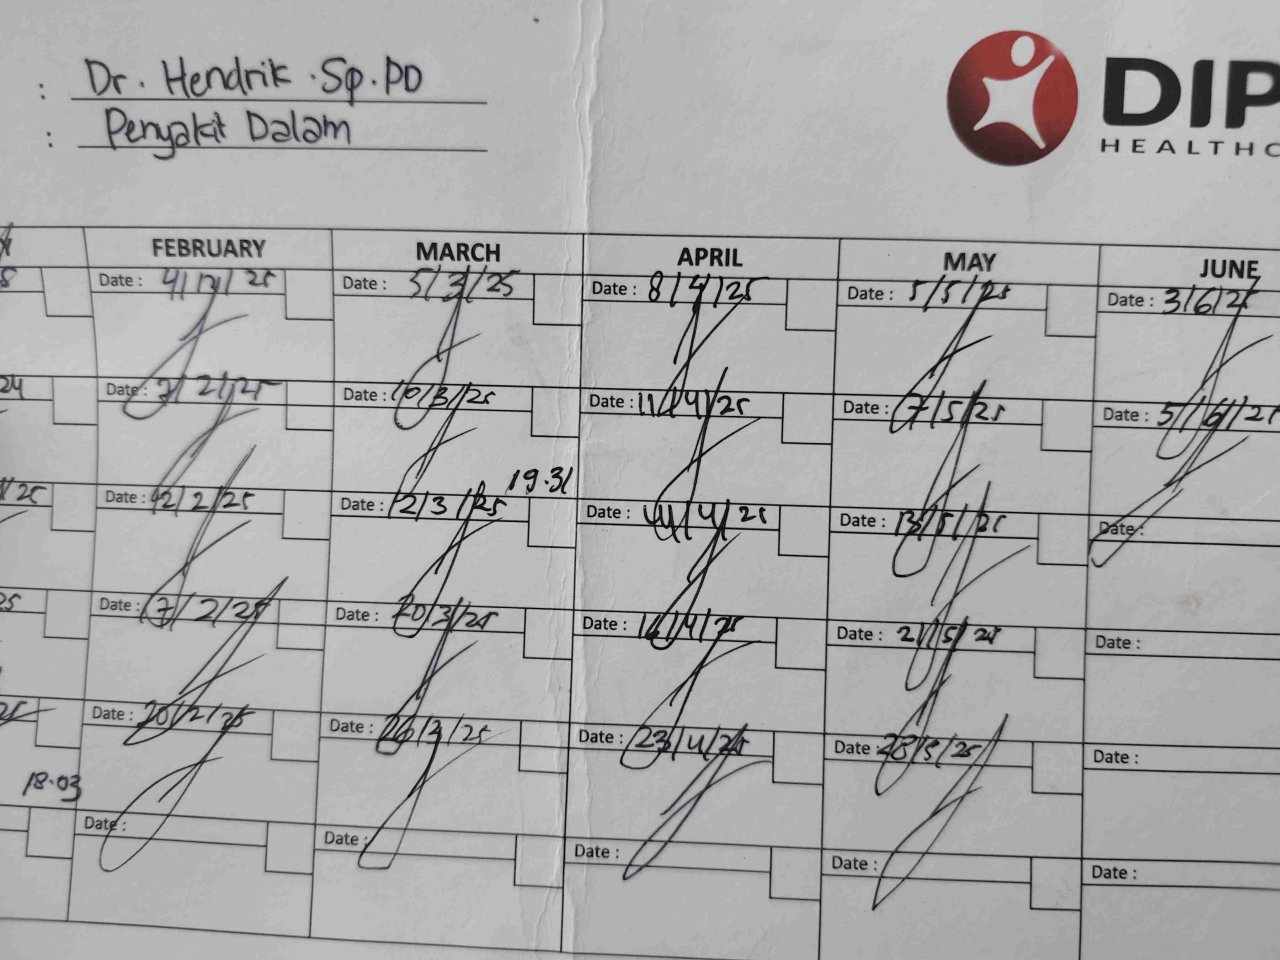 : Dr. Hendrik .Sp.PD
: Penyakit Dalam
DIP
HEALTHC
FEBRUARY MARCH APRIL MAY JUNE
Date : 4/2/25 Date : 5/3/25 Date : 8/4/25 Date : 5/5/25 Date : 3/6/25
24 Date : 7/2/25 Date : 10/3/25 Date : 11/4/25 Date : 7/5/25 Date : 5/6/25
19.31
/25 Date : 12/2/25 Date : 12/3/25 Date : 14/4/25 Date : 13/5/25 Date :
25 Date : 17/2/25 Date : 20/3/25 Date : 16/4/25 Date : 21/5/25 Date :
25 Date : 20/2/25 Date : 26/3/25 Date : 23/4/25 Date : 28/5/25 Date :
18.03
Date : Date : Date : Date : Date :